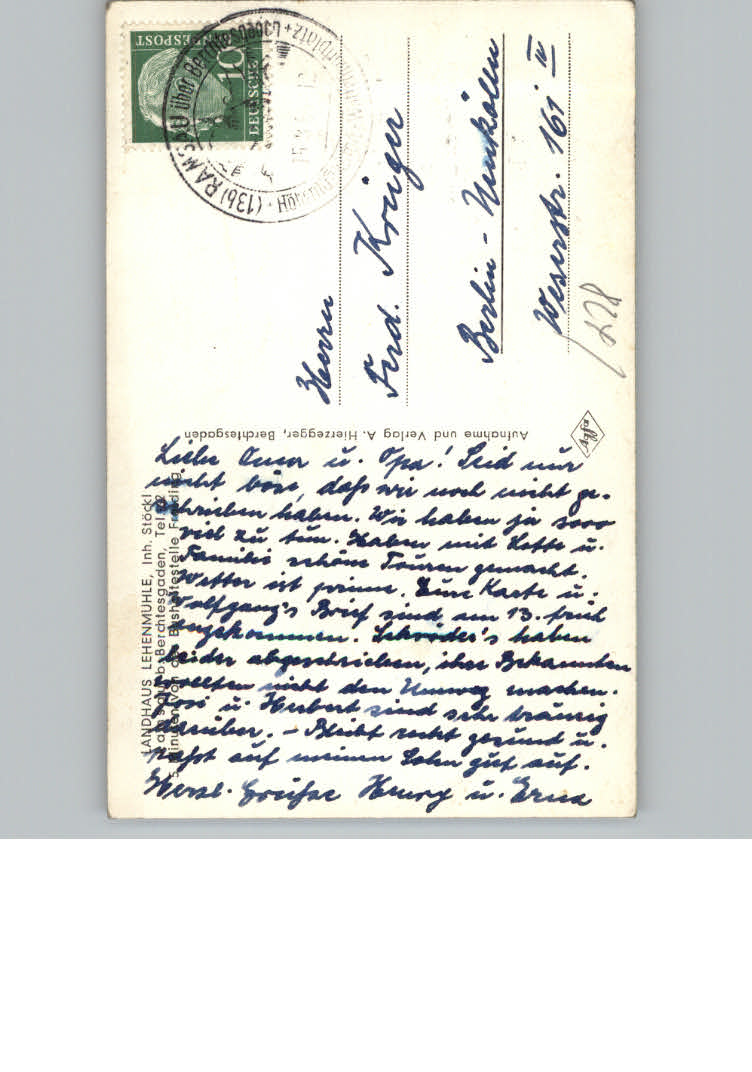 DEUTSCHE
BUNDESPOST
10
(13b) RAMSAU über Berchtesgaden
Herrn
Ferd. Krüger
Berlin - Neukölln
Weserstr. 161 IV
278
Aufnahme und Verlag A. Hierzegger, Berchtesgaden
Agfa
LANDHAUS LEHENMÜHLE, Inh. Stöckl
Ramsau b. Berchtesgaden, Tel.
5 Minuten von der Bushaltestelle
Liebe Oma u. Opa! Seid nur
nicht böse, dass wir noch nicht ge-
schrieben haben. Wir haben ja sooo
viel zu tun. Haben mit Lotte u.
Familie schöne Touren gemacht.
Wetter ist prima. Eure Karte u.
Wolfgang's Brief sind am 13. früh
angekommen. Schröder's haben
leider abgeschrieben, ihre Bekannten
wollten nicht den Umweg machen.
u. Herbert sind sehr traurig
darüber. - Bleibt recht gesund u.
passt auf meinen Sohn gut auf.
Herzl. Grüsse Henry u. Erna